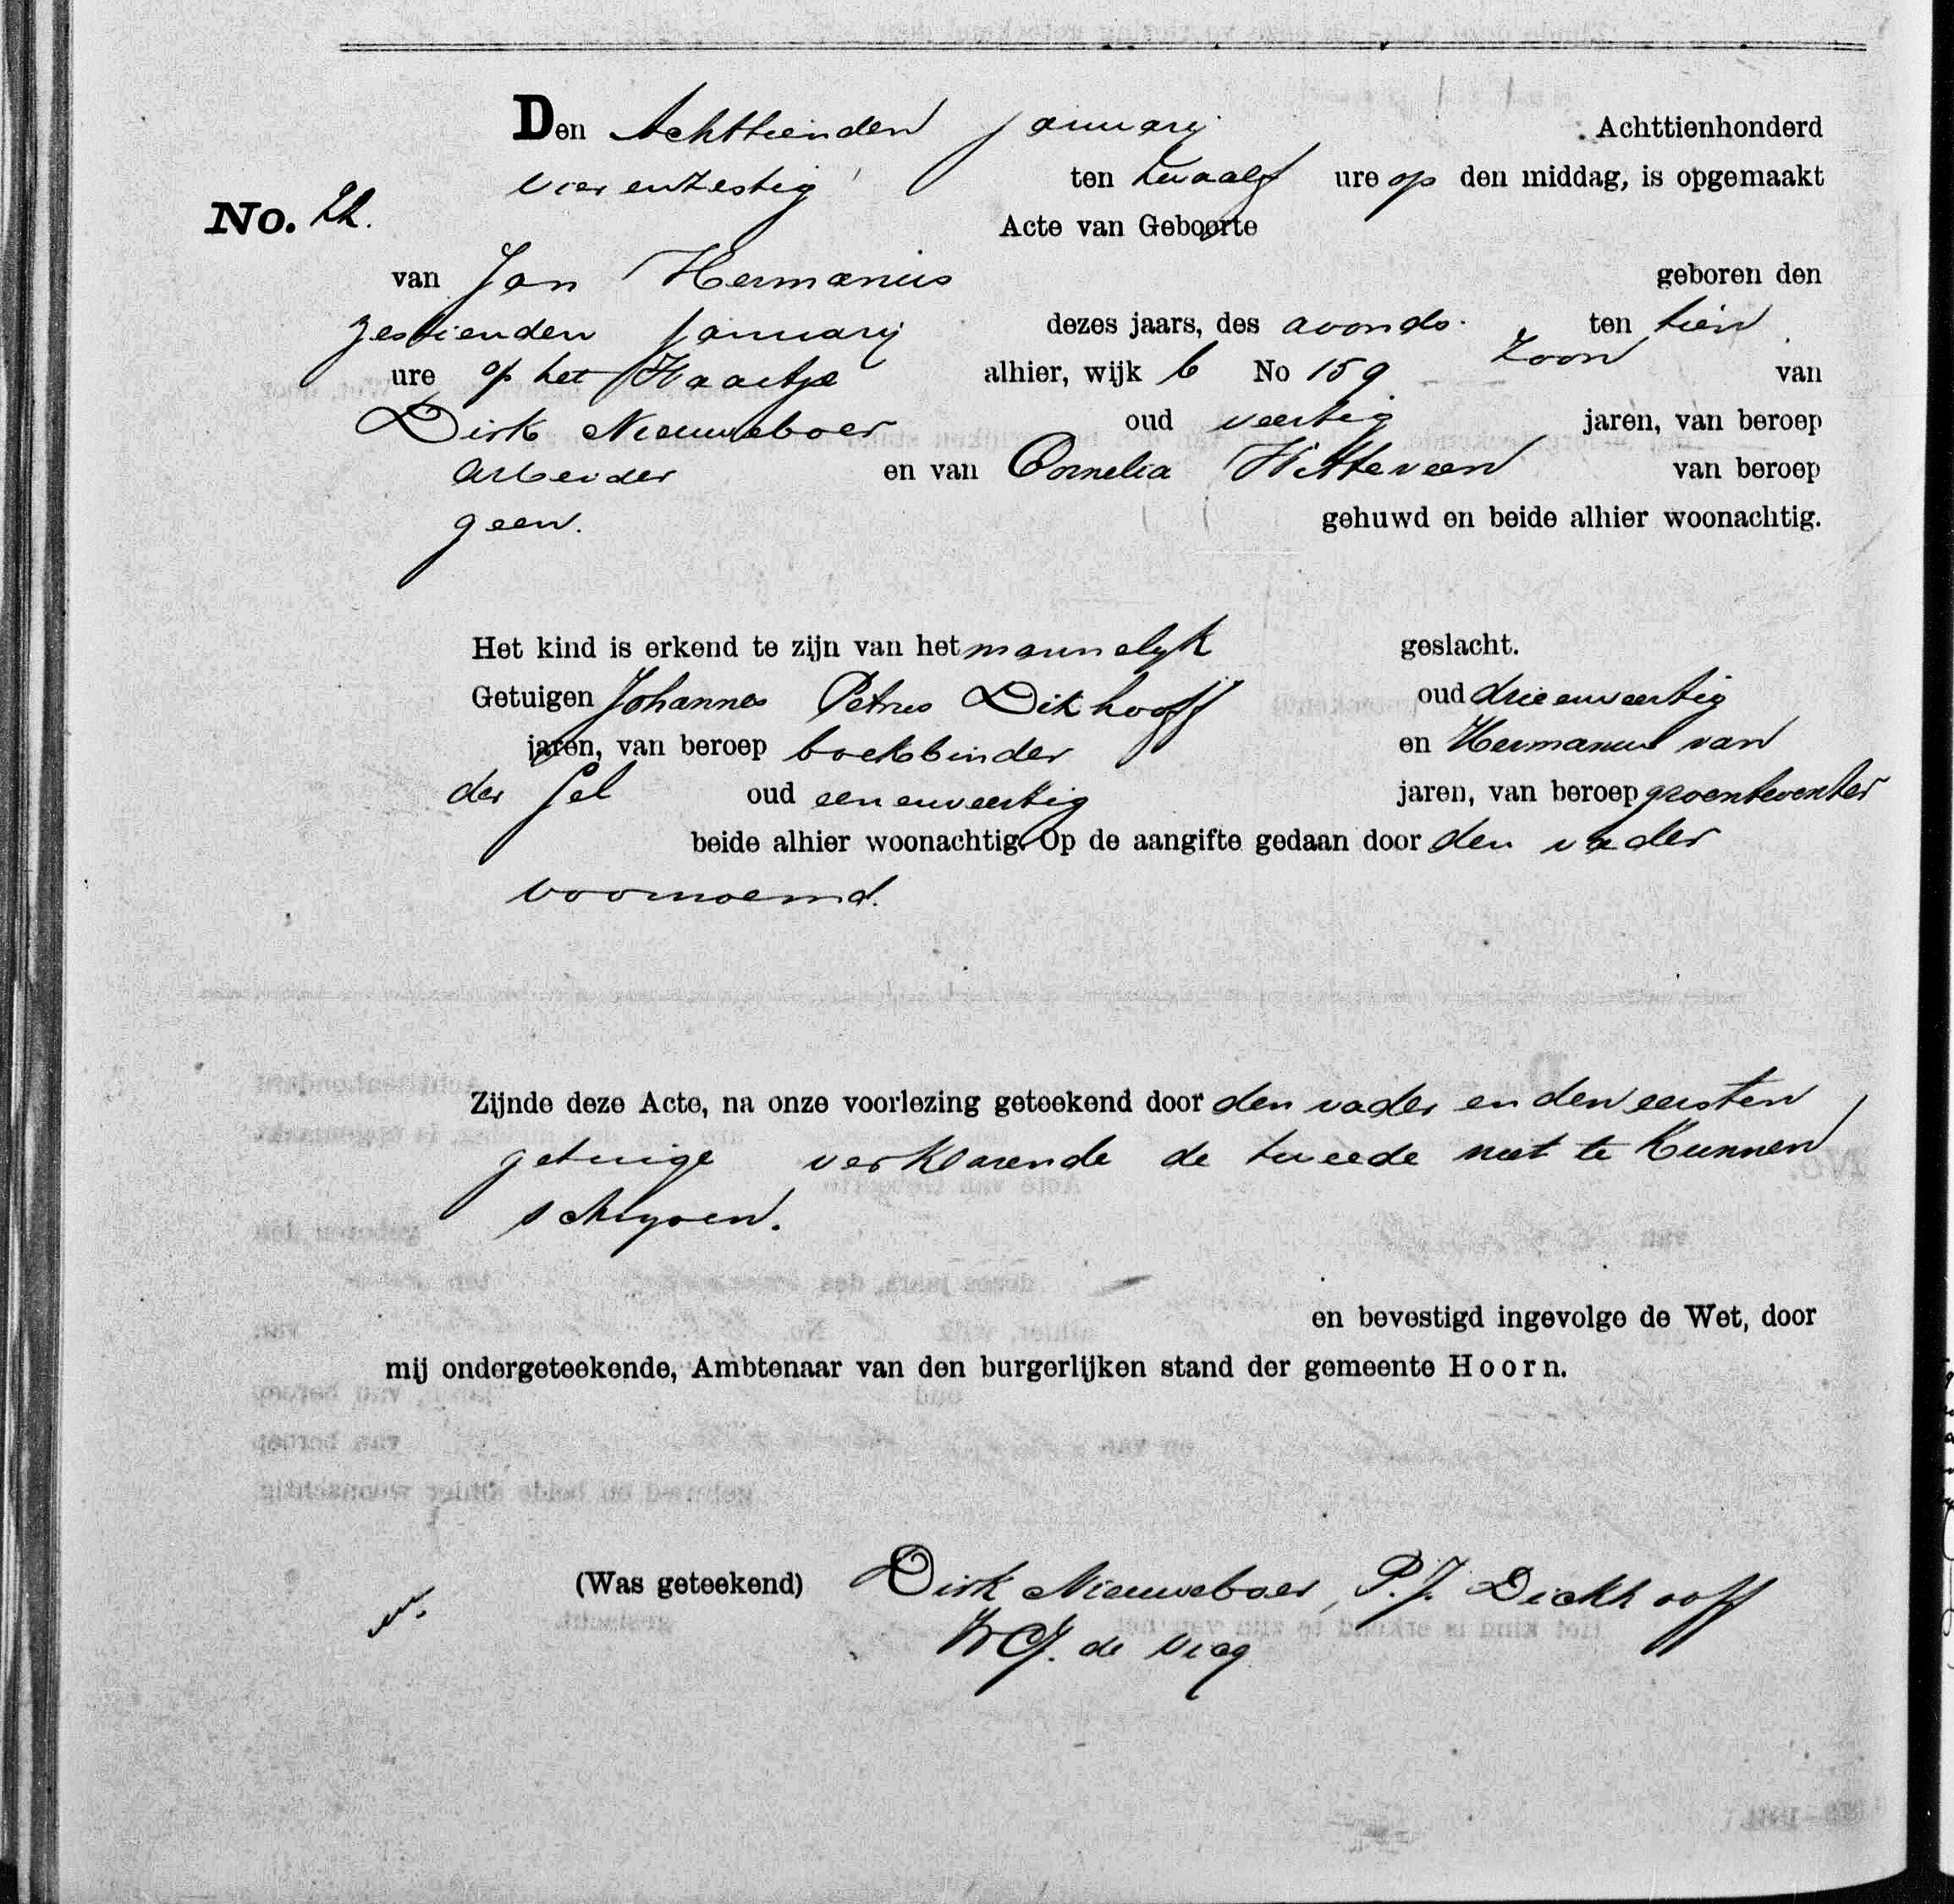 Den Achttienden januarij Achttienhonderd
vierenzestig ten twaalf ure op den middag, is opgemaakt
No. 22. Acte van Geboorte
van Jan Hermanus geboren den
zestienden januarij dezes jaars, des avonds ten tien
ure op het alhier, wijk 6 No 159 zoon van
Dirk Nieuweboer oud veertig jaren, van beroep
arbeider en van Cornelia Witteveen van beroep
geen. gehuwd en beide alhier woonachtig.
Het kind is erkend te zijn van het mannelyk geslacht.
Getuigen Johannes Petrus Dikhooff oud drieenveertig
jaren, van beroep boekbinder en Hermanus van
der Sel oud eenenveertig jaren, van beroep groenteventer
beide alhier woonachtig. Op de aangifte gedaan door den vader
voornoemd.
Zijnde deze Acte, na onze voorlezing geteekend door den vader en den eersten
getuige verklarende de tweede niet te kunnen
schryven.
en bevestigd ingevolge de Wet, door
mij ondergeteekende, Ambtenaar van den burgerlijken stand der gemeente Hoorn.
(Was geteekend) Dirk Nieuweboer, P. J. Dickhooff
de